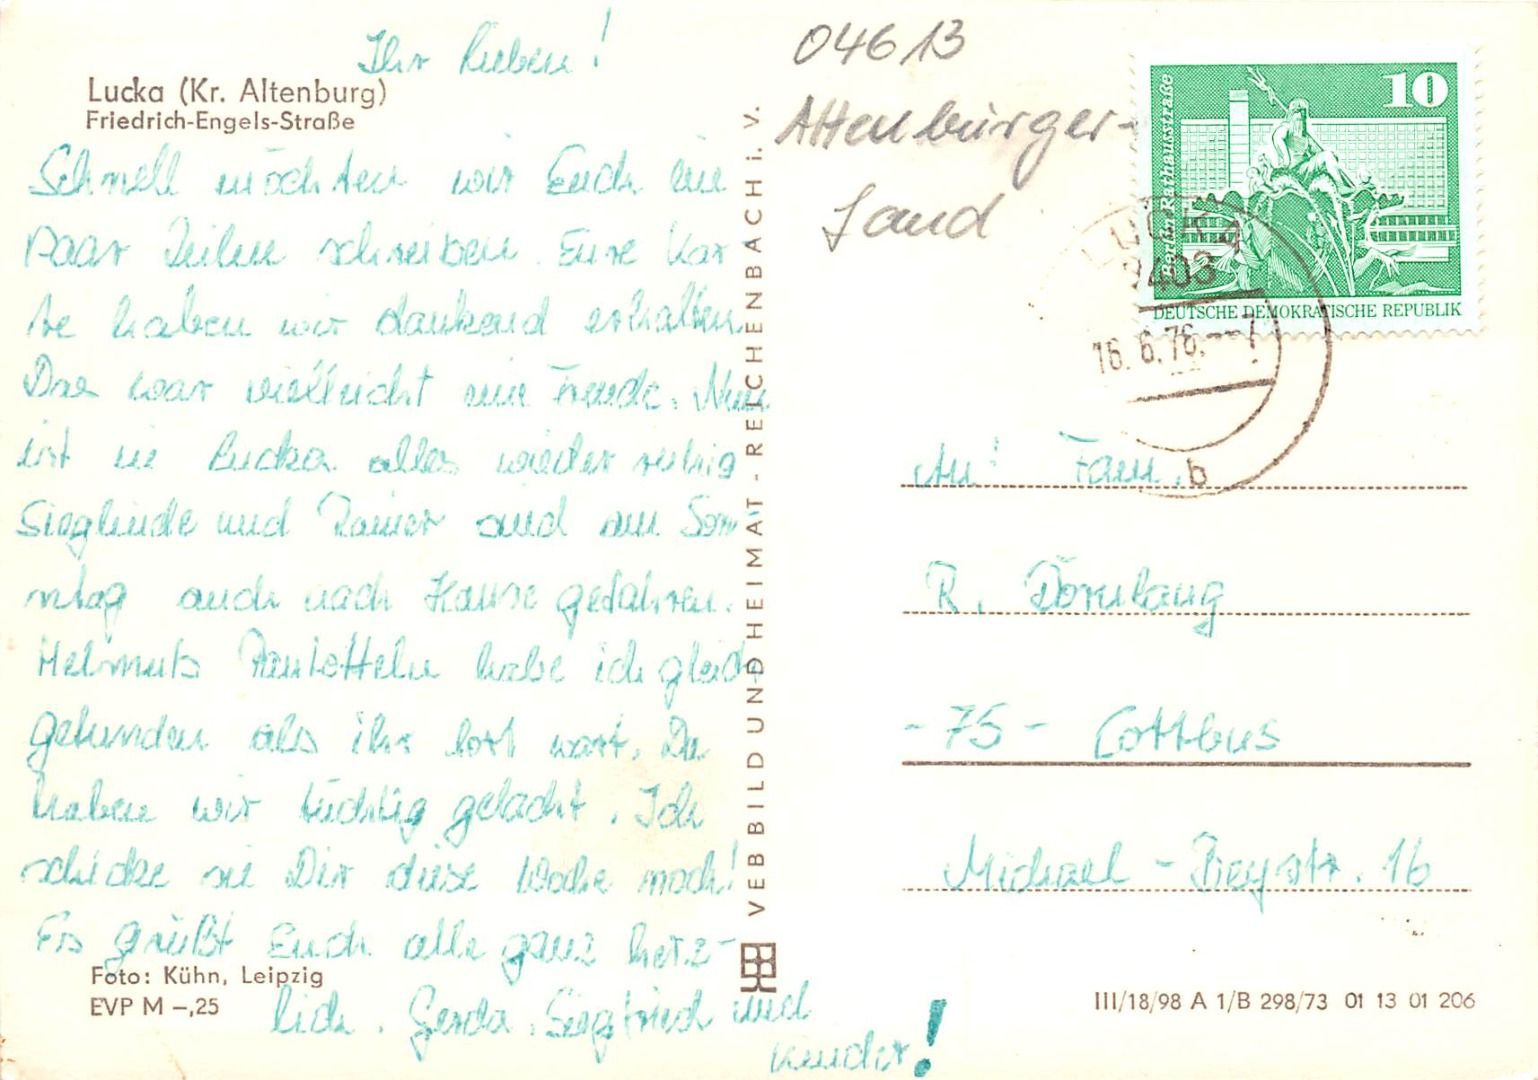 Ihr Lieben!
Lucka (Kr. Altenburg)
Friedrich-Engels-Straße
Schnell möchten wir Euch ein
paar Zeilen schreiben. Eure Kar
te haben wir dankend erhalten.
Das war vielleicht eine Freude. Nun
ist in Lucka alles wieder ruhig
Sieglinde und Rainer sind am Son-
ntag auch nach Hause gefahren.
Helmuts habe ich gleich
gefunden als ihr fort wart. Da
haben wir tüchtig gelacht. Ich
schicke sie Dir diese Woche noch!
Es grüßt Euch alle ganz herz-
lich. Gerda, Siegfried und
Kinder!
Foto: Kühn, Leipzig
EVP M –,25
VEB BILD UND HEIMAT - REICHENBACH i. V.
04613
Altenburger-
Land
10
Berlin, Rathausstraße
DEUTSCHE DEMOKRATISCHE REPUBLIK
LUCKA
7403
16.6.76.--7
b
An! Fam.
R. Dörnlang
-75- Cottbus
Michael-Beystr. 16
III/18/98 A 1/B 298/73 01 13 01 206